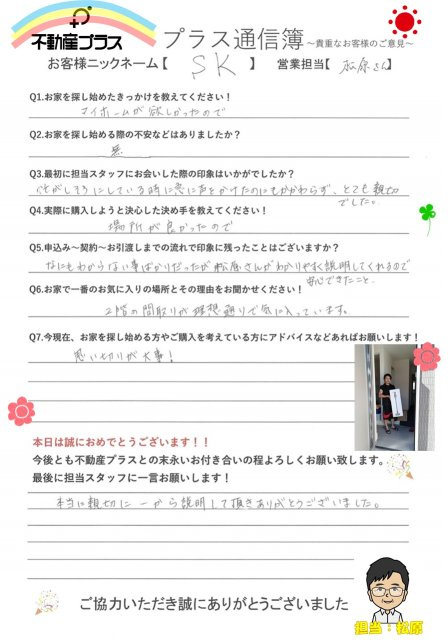 不動産プラス プラス通信簿 ～貴重なお客様のご意見～
お客様ニックネーム【 SK 】 営業担当【 松原さん 】
Q1.お家を探し始めたきっかけを教えてください！
マイホームが欲しかったので
Q2.お家を探し始める際の不安などはありましたか？
無
Q3.最初に担当スタッフにお会いした際の印象はいかがでしたか？
忙がしそうにしている時に急に声をかけたのにもかかわらず、とても親切
でした。
Q4.実際に購入しようと決心した決め手を教えてください！
場所が良かったので
Q5.申込み～契約～お引渡しまでの流れで印象に残ったことはございますか？
なにもわからない事ばかりだったが松原さんがわかりやすく説明してくれるので
安心できたこと。
Q6.お家で一番のお気に入りの場所とその理由をお聞かせください！
2階の間取りが理想通りで気に入っています。
Q7.今現在、お家を探し始める方やご購入を考えている方にアドバイスなどあればお願いします！
思い切りが大事！
本日は誠におめでとうございます！！
今後とも不動産プラスとの末永いお付き合いの程よろしくお願い致します。
最後に担当スタッフに一言お願いします！
本当に親切に一から説明して頂きありがとうございました。
ご協力いただき誠にありがとうございました
担当：松原